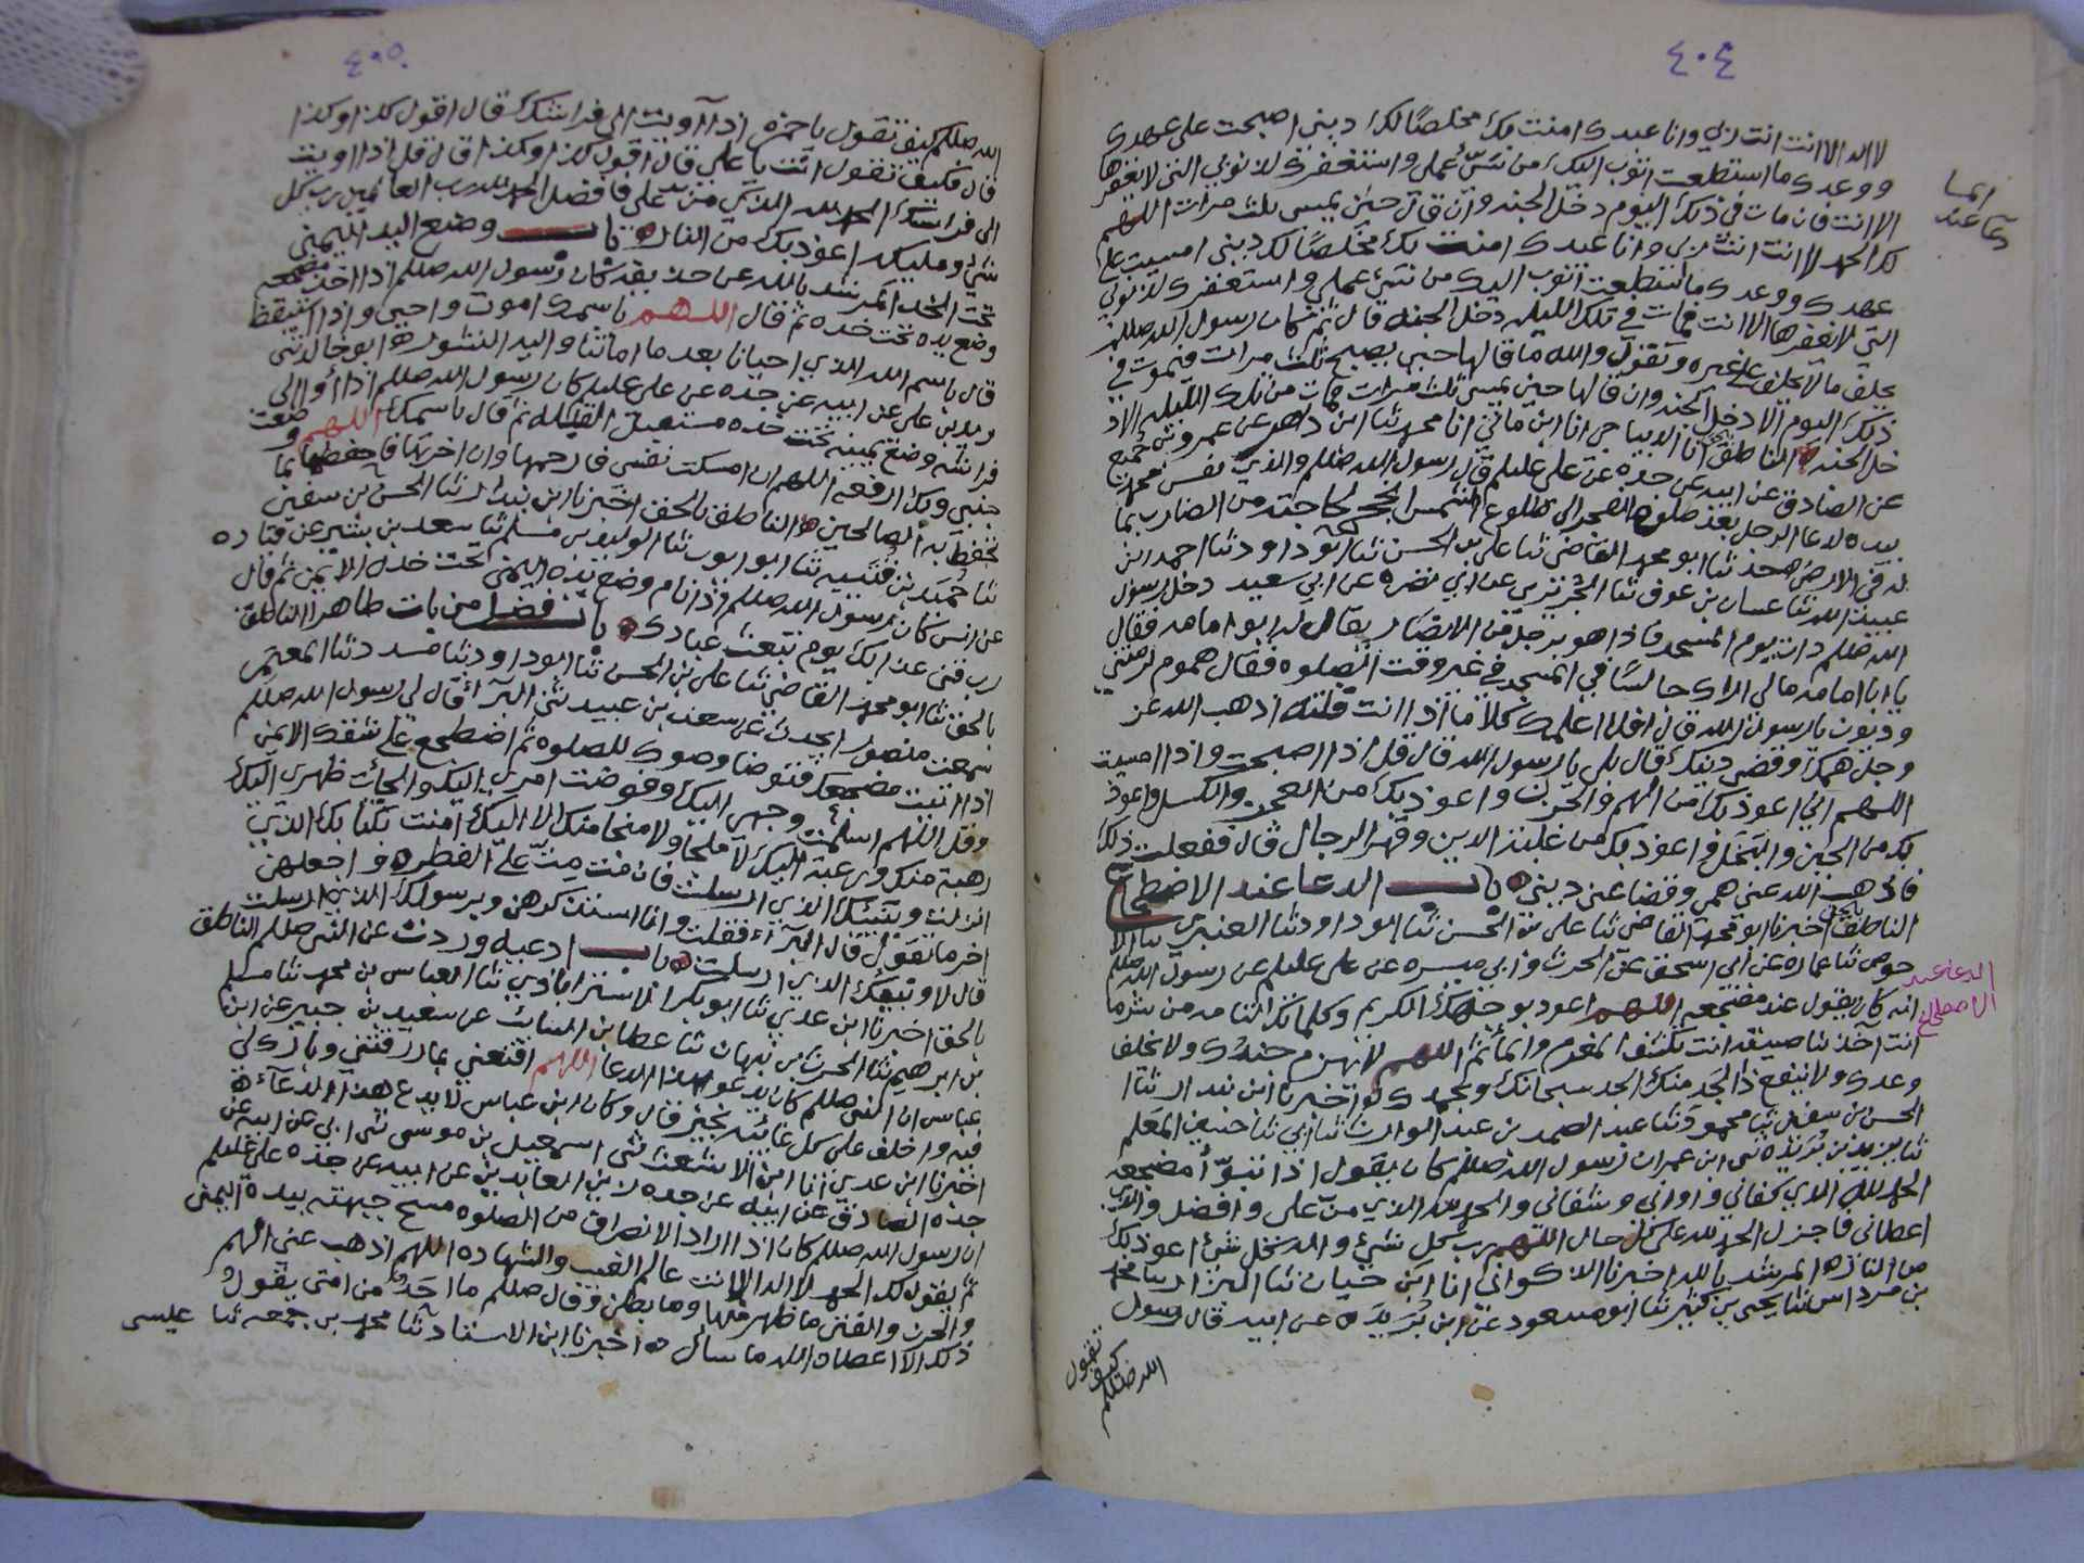 ٤٠٤
لا اله الا انت انت ربي وانا عبدك امنت بك مخلصا لك ديني اصبحت على عهدك
ووعدك ما استطعت اتوب اليك من شر عملي واستغفرك لذنوبي التي لا يغفرها
الا انت فان مات في ذلك اليوم دخل الجنه وان قال حين يمسي ثلث مرات اللهم
لك الحمد لا انت انت ربي وانا عبدك امنت بك مخلصا لك ديني امسيت على
عهدك ووعدك ما استطعت اتوب اليك من شر عملي واستغفرك لذنوبي
التي لا يغفرها الا انت فمات في تلك الليله دخل الجنه قال ثم كان رسول الله صللم
يحلف ما لا يحلف على غيره ويقول والله ما قالها حين يصبح ثلث مرات فيموت في
ذلك اليوم الا دخل الجنه وان قالها حين يمسي ثلث مرات فمات من تلك الليله الا د
خل الجنه الناطق انا الديباجي انا ابن ماتي انا محمد ثنا ابن داهر عن عمرو بن جميع
عن الصادق عن ابيه عن جده عن علي عليلم قال رسول الله صللم والذي نفس محمد
بيده لدعا الرجل بعد صلوه الفجر الى طلوع الشمس انجح لحاجته من الضارب بماله
له في الارض حدثنا ابو محمد القاضي ثنا علي بن الحسن ثنا ابو داود ثنا احمد بن
عبيد الله ثنا غسان بن عوف ثنا الجريري عن ابي نضره عن ابي سعيد دخل رسول
الله صللم ذات يوم المسجد فاذا هو برجل من الانصار يقال له ابو امامه فقال
يا ابا امامه مالي اراك جالسا في المسجد في غير وقت الصلوه فقال هموم لزمتني
وديون يا رسول الله قال افلا اعلمك كلاما اذا انت قلته اذهب الله عز
وجل همك وقضى دينك قال بلى يا رسول الله قال قل اذا اصبحت واذا امسيت
اللهم اني اعوذ بك من الهم والحزن واعوذ بك من العجز والكسل واعوذ
بك من الجبن والبخل واعوذ بك من غلبة الدين وقهر الرجال قال ففعلت ذلك
فاذهب الله عني همي وقضا عني ديني باب الدعا عند الاضطجاع
الناطق بالحق اخبرنا ابو محمد القاضي ثنا علي بن الحسن ثنا ابو داود ثنا العنبري ثنا الا
حوص ثنا عمار عن ابي اسحق عن الحرث وابي ميسره عن علي عليلم عن رسول الله صللم
انه كان يقول عند مضجعه اللهم اعوذ بوجهك الكريم وكلماتك التامه من شر ما
انت آخذ بناصيته انت تكشف المغرم والمأثم اللهم لا يهزم جندك ولا يخلف
وعدك ولا ينفع ذا الجد منك الجد سبحانك وبحمدك اخبرنا ابن بندار ثنا
الحسن بن سفين ثنا محمود ثنا عبد الصمد بن عبد الوارث ثنا ابي ثنا حسين المعلم
ثنا بن بريده ثنى ابن عمر ان رسول الله صللم كان يقول اذا تبوأ مضجعه
الحمد لله الذي كفاني واواني وسقاني والحمد لله الذي من على وافضل والذي
اعطاني فاجزل الحمد لله على كل حال اللهم رب كل شيء واله كل شيء اعوذ بك
من النار المرشد بالله اخبرنا الذكواني انا ابن حيان ثنا البزار ثنا محمد
بن مرداس ثنا يحيى بن كثير ثنا ابو مسعود عن ابن بريده عن ابيه قال رسول
الله صللم كيف تقول
المسا
دعا عند
الدعا عند
الاضطجاع
٤٠٥
الله صللم كيف تقول يا حمزه اذا آويت الى فراشك قال اقول كذا وكذا
قال فكيف تقول انت يا علي قال اقول كذا وكذا قال قل اذا اويت
الى فراشك الحمد لله الذي من على فافضل الحمد لله رب العالمين رب كل
شيء ومليكه اعوذ بك من النار باب وضع اليد اليمنى
تحت الخد المرشد بالله عن حذيفه كان رسول الله صللم اذا اخذ مضجعه
وضع يده تحت خده ثم قال اللهم باسمك اموت واحيى واذا استيقظ
قال باسم الله الذي احيانا بعد ما اماتنا واليه النشور ابو خالد ثنى
زيد بن علي عن ابيه عن جده عن علي عليلم كان رسول الله صللم اذا أوا الى
فراشه وضع يمينه تحت خده مستقبل القبله ثم قال باسمك اللهم وضعت
جنبي وبك ارفعه اللهم ان امسكت نفسي فارحمها وان اخرتها فاحفظها بما
تحفظ به الصالحين الناطق بالحق اخبرنا ابن بندار ثنا الحسن بن سفين
ثنا حميد بن قتيبه ثنا ابو ايوب ثنا الوليد بن مسلم ثنا سعد بن بشير عن قتاده
عن انس كان رسول الله صللم اذا نام وضع يده اليمنى تحت خده الايمن ثم قال
رب قني عذابك يوم تبعث عبادك باب فضل من بات طاهرا الناطق
بالحق ثنا ابو محمد القاضي ثنا علي بن الحسن ثنا ابو داود ثنا مسدد ثنا المعتمر
سمعت منصور يحدث عن سعد بن عبيد ثنى البرآ قال لي رسول الله صللم
اذا اتيت مضجعك فتوضا وضوك للصلوه ثم اضطجع على شقك الايمن
وقل اللهم اسلمت وجهي اليك وفوضت امري اليك والجأت ظهري اليك
رهبة منك ورغبة اليك لا ملجا ولا منجا منك الا اليك امنت بكتابك الذي
انزلت وبنبيك الذي ارسلت فان مت مت على الفطره واجعلهن
اخر ما تقول قال البرآء فقلت وانا استذكرهن وبرسولك الذي ارسلت
قال لا وبنبيك الذي ارسلت باب ادعيه وردت عن النبي صللم الناطق
بالحق اخبرنا ابن عدي ثنا ابو بكر الاستراباذي ثنا العباس بن محمد ثنا مسلم
بن ابرهيم ثنا الحرث بن نبهان ثنا عطا بن السائب عن سعيد بن جبير عن ابن
عباس ان النبي صللم كان يدعو بهذا الدعا اللهم اقنعني بما رزقتني وبارك لي
فيه واخلف على كل غائبه بخير قال وكان ابن عباس لا يدع هذا الدعآء
اخبرنا ابن عدي انا ابن الاشعث ثنى اسمعيل بن موسى ثنى ابي عن ابيه عن
جده الصادق عن ابيه عن جده زين العابدين عن ابيه عن جده علي عليلم
ان رسول الله صللم كان اذا اراد الانصراف من الصلوه مسح جبهته بيده اليمنى
ثم يقول لك الحمد لا اله الا انت عالم الغيب والشهاده اللهم اذهب عني الهم
والحزن والفتن ما ظهر منها وما بطن وقال صللم ما احد من امتي يقول
ذلك الا اعطاه الله ما سال اخبرنا ابن الاستاد ثنا محمد بن جمعه ثنا عليسى